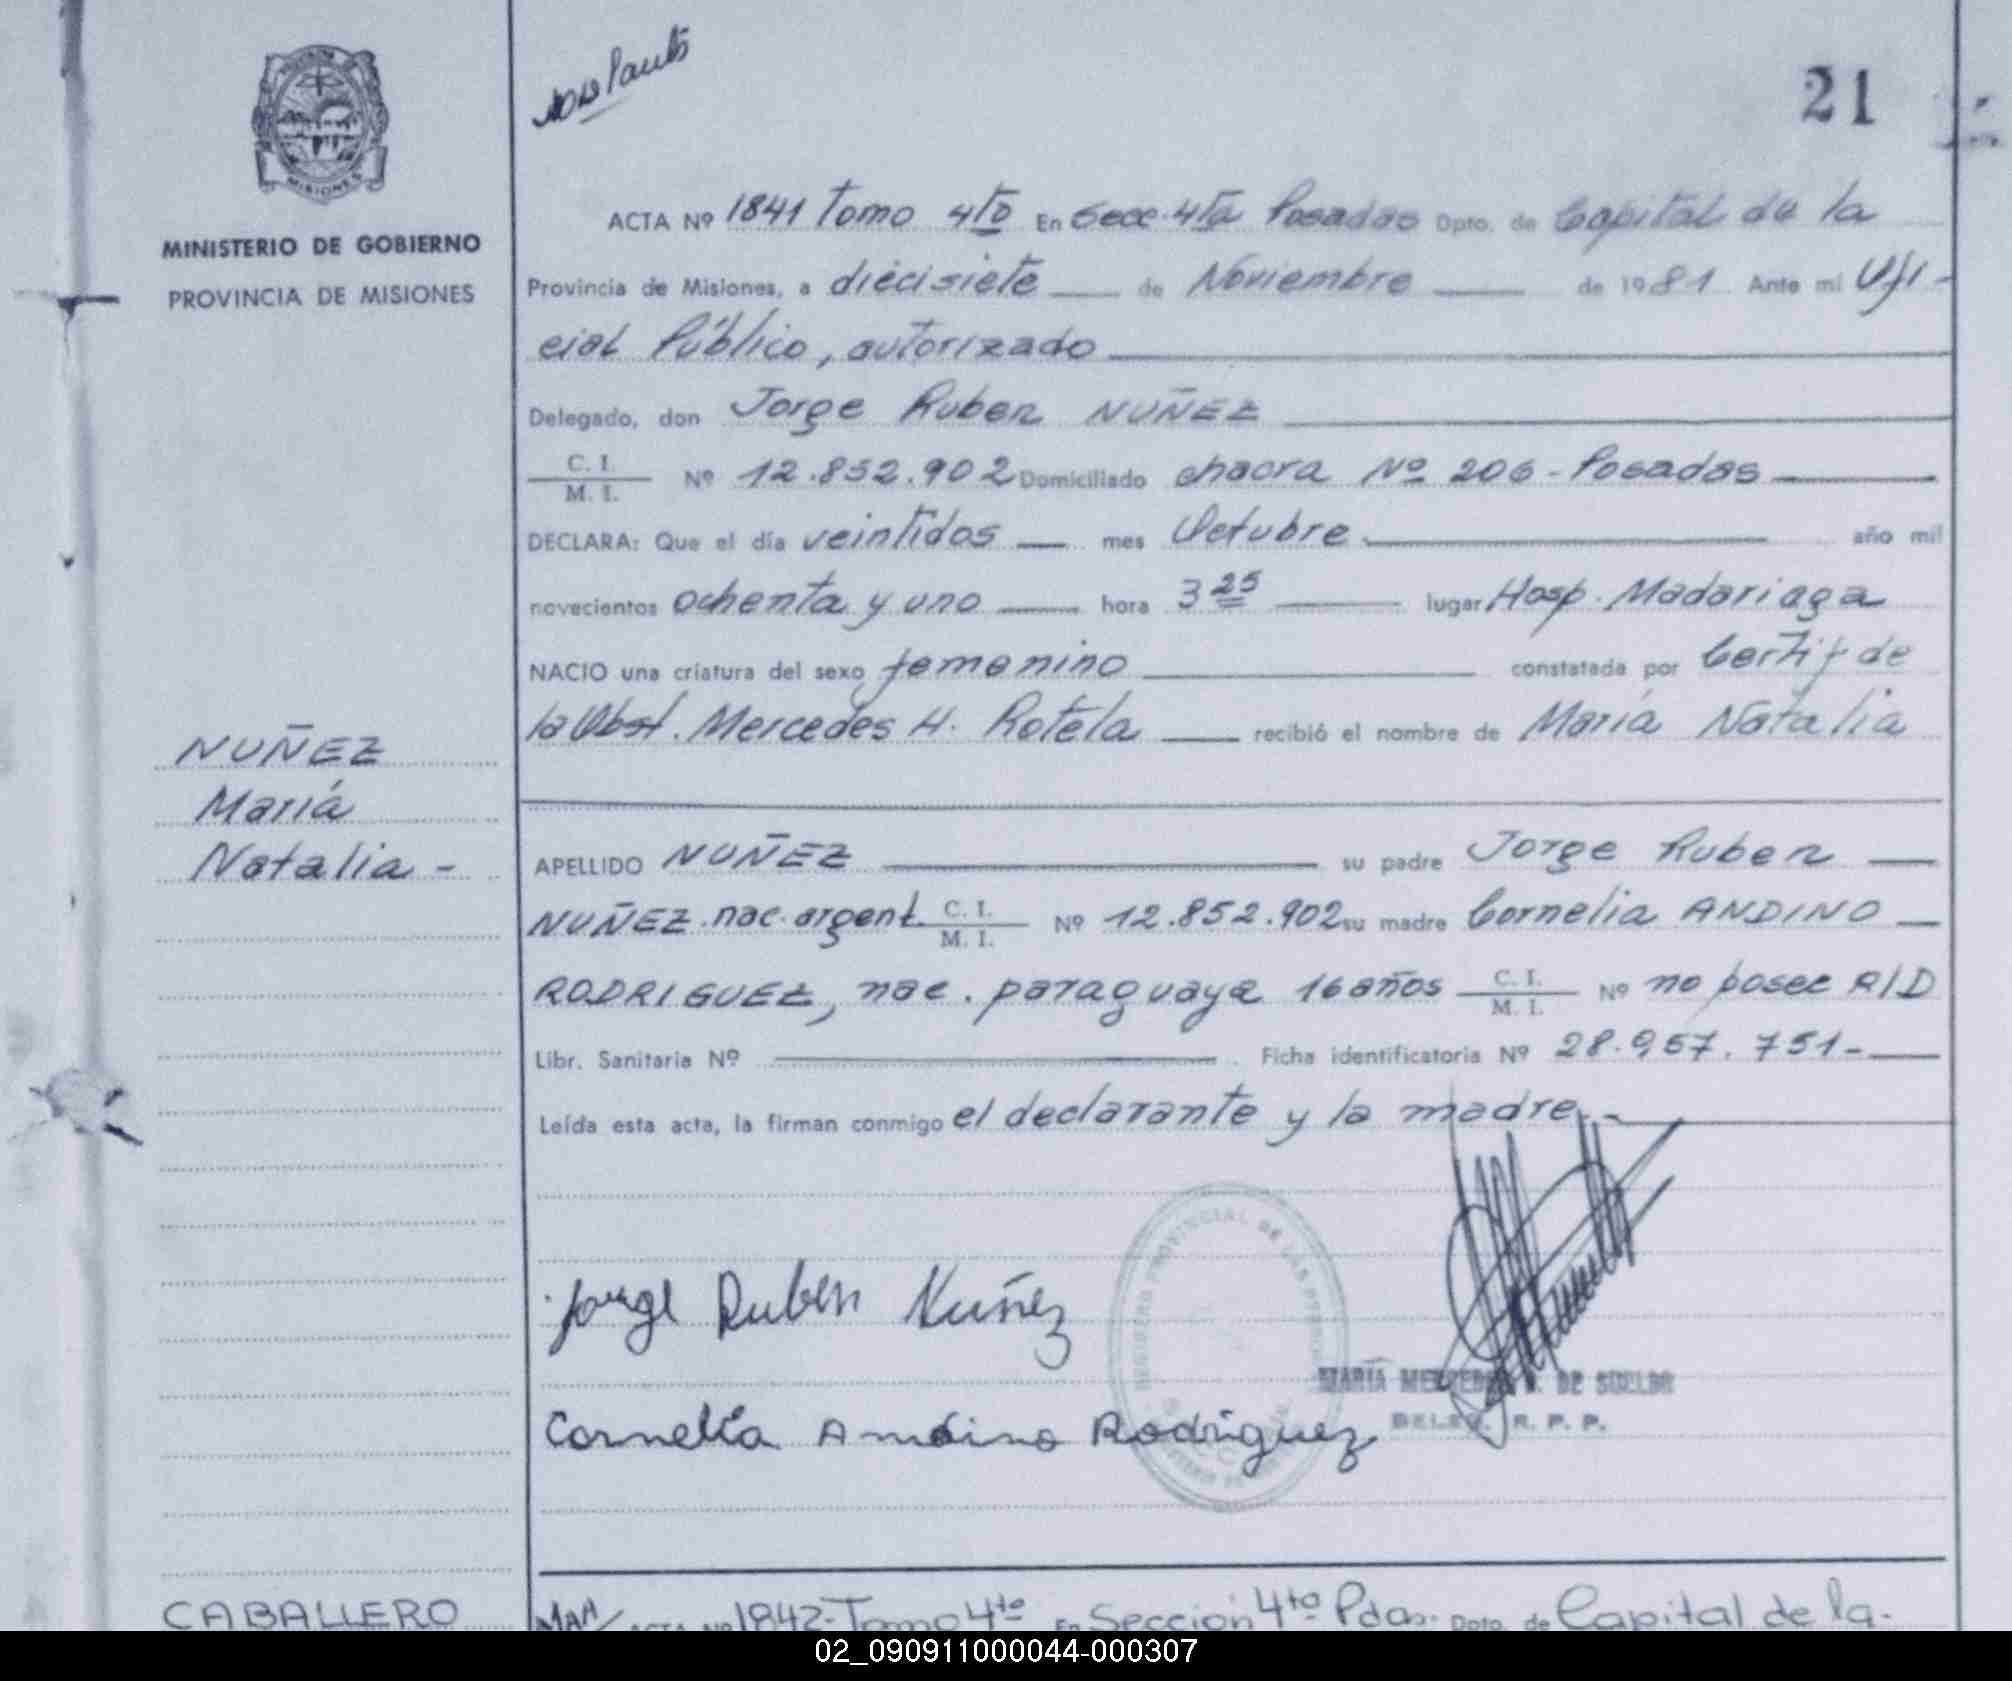 21
MISIONES
MINISTERIO DE GOBIERNO
PROVINCIA DE MISIONES
ACTA Nº 1841 Tomo 4to En Secc. 4ta Posadas Dpto. de Capital de la
Provincia de Misiones, a diecisiete de Noviembre de 1981 Ante mi Ofi-
cial Público, autorizado
Delegado, don Jorge Ruben NUÑEZ
C. I.
M. I. Nº 12.852.902 Domiciliado chacra Nº 206 - Posadas
DECLARA: Que el día veintidos mes Octubre año mil
novecientos ochenta y uno hora 3 25 lugar Hosp. Madariaga
NACIO una criatura del sexo femenino constatada por Certif de
la Obst. Mercedes H. Rotela recibió el nombre de María Natalia
NUÑEZ
María
Natalia -
APELLIDO NUÑEZ su padre Jorge Ruben
NUÑEZ nac. argent. C. I.
M. I. Nº 12.852.902 su madre Cornelia ANDINO
RODRIGUEZ, nac. paraguaya 16 años C. I.
M. I. Nº no posee R/D
Libr. Sanitaria Nº Ficha identificatoria Nº 28.957.751-
Leída esta acta, la firman conmigo el declarante y la madre.-
Jorge Ruben Nuñez
REGISTRO PROVINCIAL DE LAS PERSONAS
MARIA MERCEDES DE
DELEG. R. P. P.
Cornelia Andino Rodriguez
CABALLERO
ACTA Nº 1842-Tomo 4to En Seccion 4to Pdas. Dpto. de Capital de la-
02_090911000044-000307